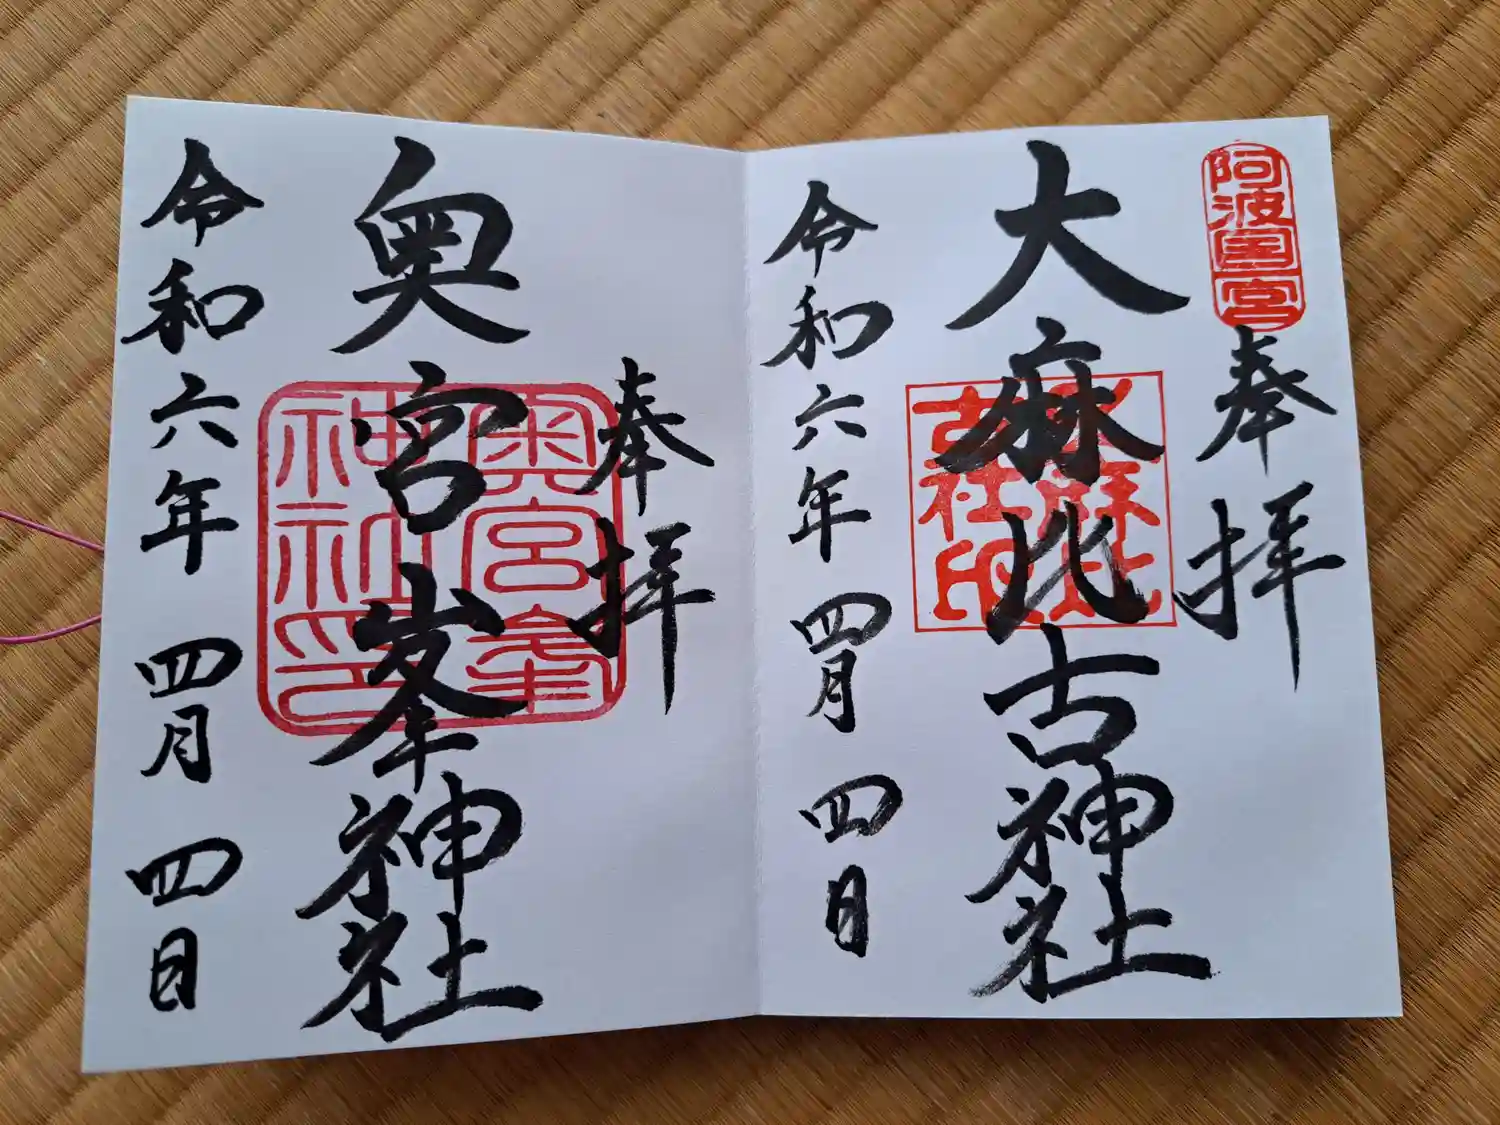 阿波国一宮
奉拝
大麻比古神社
大麻比
古社印
令和六年四月四日
奉拝
奥宮峯神社
奥宮峯
神社印
令和六年四月四日